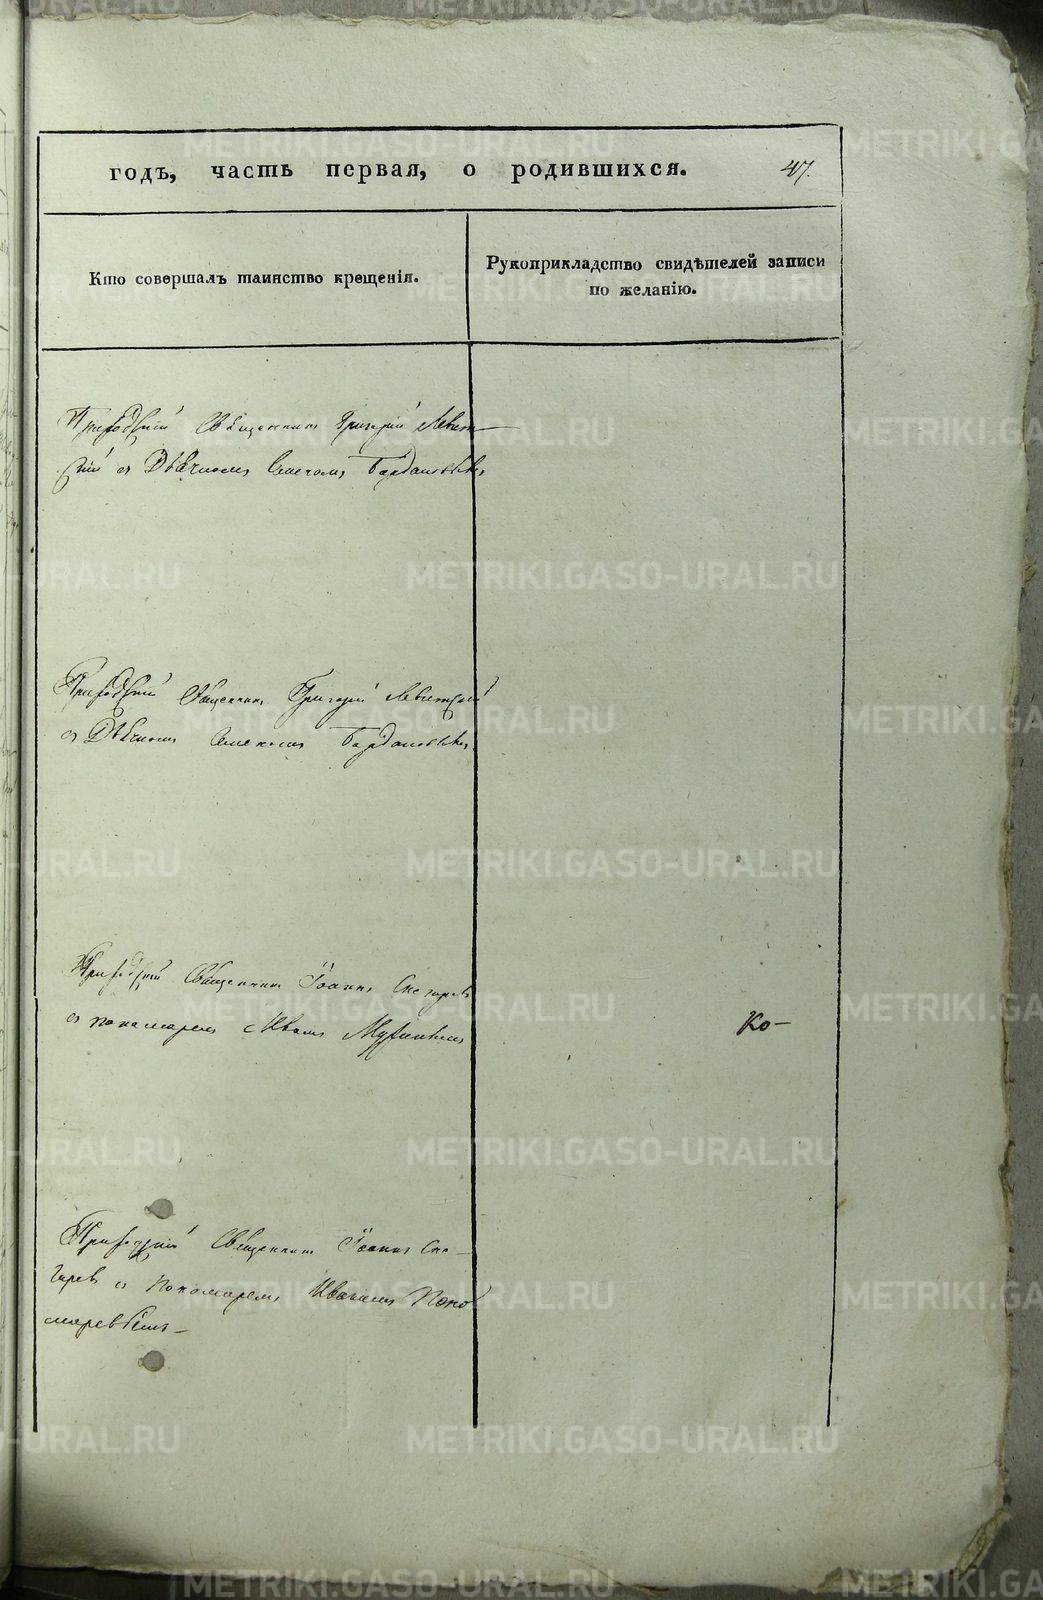 годъ, часть первая, о родившихся. 47.
Кто совершалъ таинство крещенія.
Рукоприкладство свидѣтелей записи
по желанію.
Приходскій Священникъ Григорій Левит-
скій съ Дьячкомъ
Приходскій Священникъ Григорій Левитскій
съ Дьячкомъ
Приходскій Священникъ Іоаннъ Снегирев
съ пономаремъ Иваномъ
Ко-
Приходскій Священникъ Іоаннъ Сне-
гирев съ Пономаремъ Иваномъ Поно
маревымъ-
METRIKI.GASO-URAL.RU